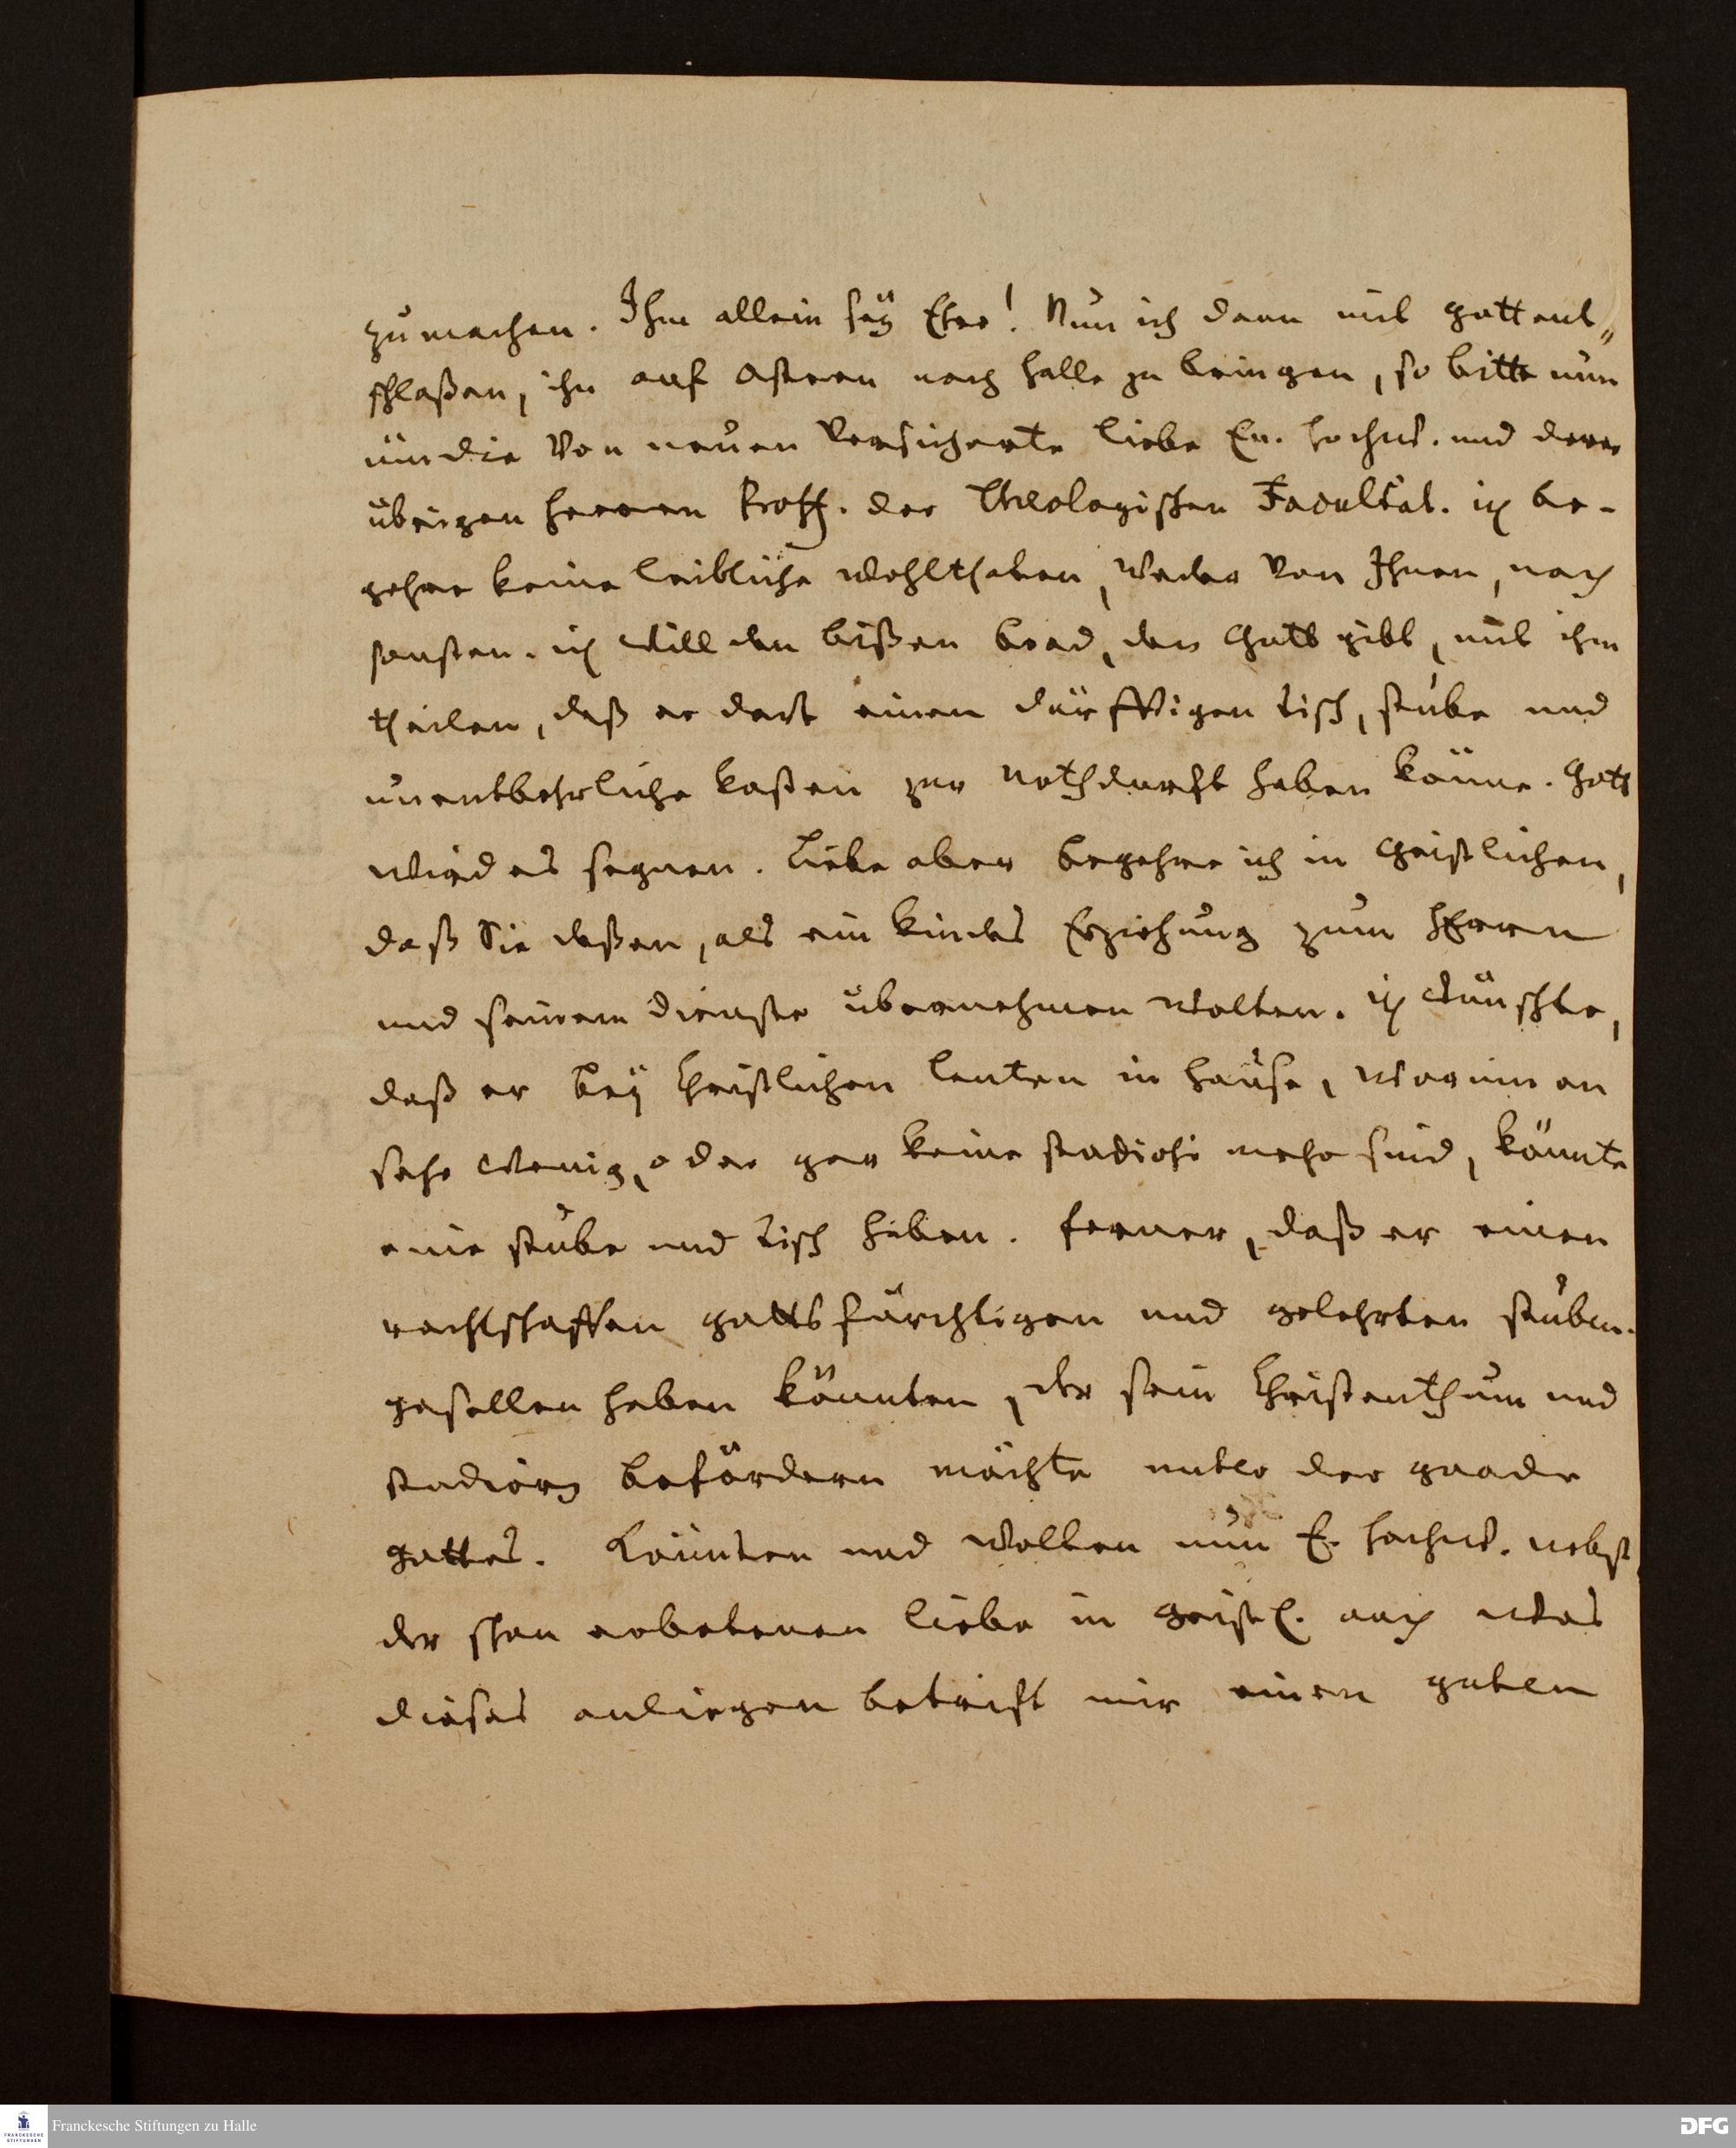 zu machen. Ihm allein sey Ehre! Nun ich denn mit Gott ent„
schloßen, ihn auf Ostern nach Halle zu bringen, so bitte nun
um die von neuen versicherte liebe Ew. Hochw. und derer
übrigen Herren Proff. der Theologischen Facultät. ich be-
gehre keine leibliche wohlthaten, weder von Ihnen, noch
sonsten. ich will den bißen brod, den Gott gibt, mit ihm
theilen, daß er dort einen dürfftigen tisch, stube und
unentbehrliche kosten zur nothdurft haben könne. Gott
wird es segnen. Liebe aber begehre ich in Geistlichen,
daß Sie deßen, als ein kindes Erziehung zum HErrn
und seinem dienste übernehmen wolten. ich wünschte,
daß er bey Christlichen leuten in hause, worinnen
sehr wenig, oder gar keine studiosi mehr sind, könnte
eine stube und tisch haben. ferner, daß er einen
rechtschaffen gottsfürchtigen und gelehrten stuben-
gesellen haben könnten, der sein Christenthum und
studiren befördern möchte unter der gnade
Gottes. Könnten und wolten nun E. Hochw. nebst
der schon erbetenen liebe in geistl. auch was
dieses anliegen betrift mir einen guten
Franckesche Stiftungen zu Halle
FRANCKESCHE STIFTUNGEN
DFG